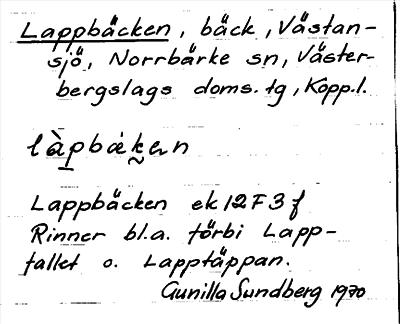 Lappbäcken, bäck, Västan-
sjö, Norrbärke sn, Väster-
bergslags doms. tg, Kopp.l.
Lappbäcken ek 12 F 3 f
Rinner bl.a. förbi Lapp-
fallet o. Lapptäppan.
Gunilla Sundberg 1970